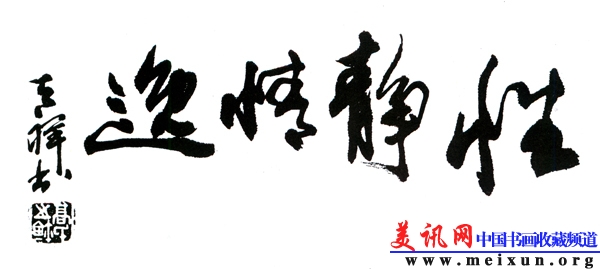 性静情逸
吉祥书
美讯网 中国书画收藏频道
www.meixun.org